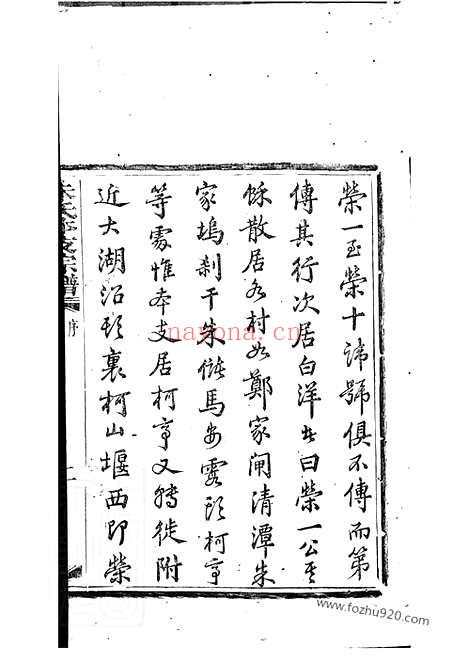 榮一至榮十諱號俱不傳而第
傳其行次居白洋者曰榮一公其
餘散居各村如鄭家閘清潭朱
家塢刹干朱儲馬安霞頭柯亭
等處惟本支居柯亭又轉徙附
近大湖沿頭裏柯山堰西即榮
支宗譜
序
nayona.cn
www.fozhu920.com